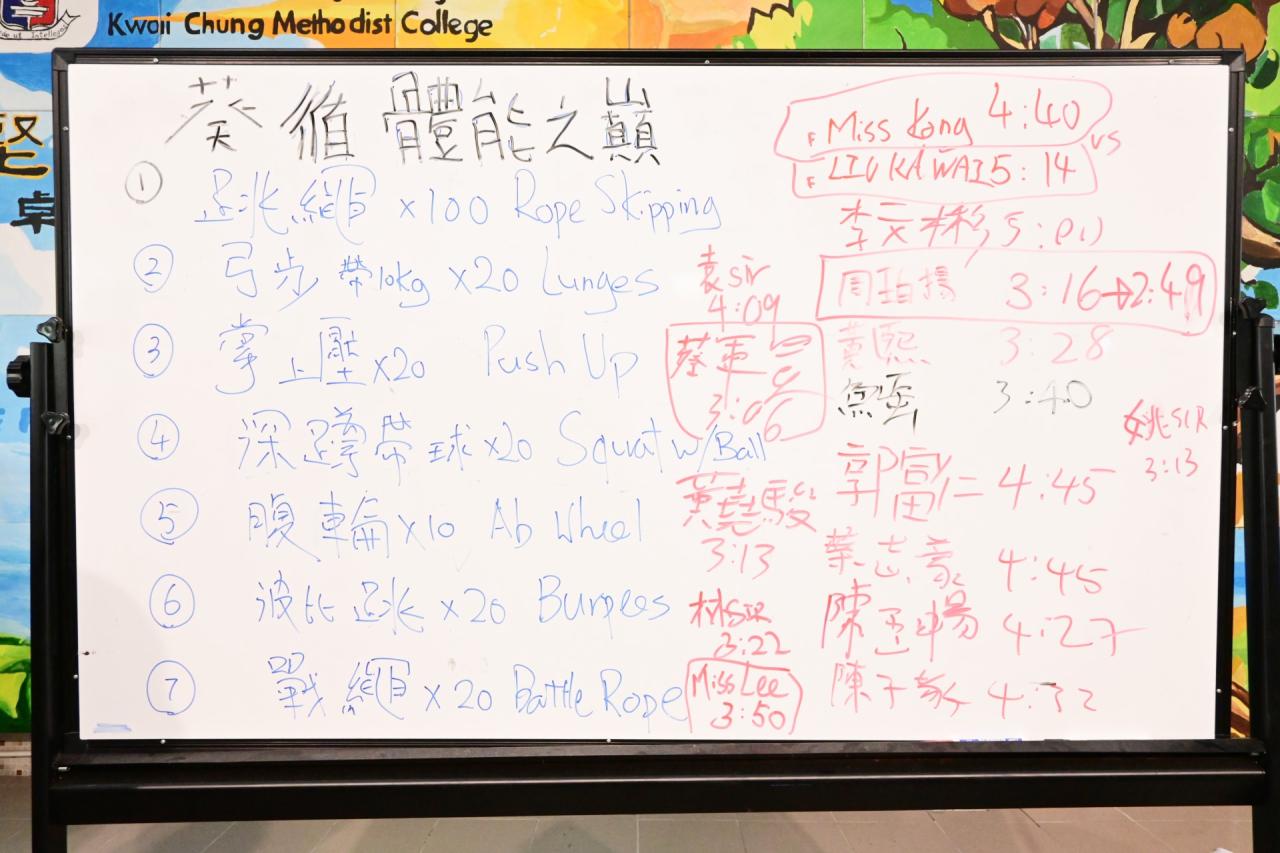 Kwaii Chung Methodist College
葵循體能之巔
① 跳繩 x100 Rope Skipping
② 弓步 帶10kg x20 Lunges
③ 掌上壓 x20 Push Up
④ 深蹲帶球 x20 Squat w/Ball
⑤ 腹輪 x10 Ab Wheel
⑥ 波比跳 x20 Burpees
⑦ 戰繩 x20 Battle Rope
袁sir
4:09
3:06
黃堯駿
3:13
林SIR
3:22
Miss Lee
3:50
F Miss Kong 4:40
vs
F LIU KA WAI 5:14
李文彬
周珀揚 3:16→2:49
黃熙 3:28
魚蛋 3:40
姚SIR
3:13
郭富仁 4:45
蔡志豪 4:45
4:27
陳子豪 4:32